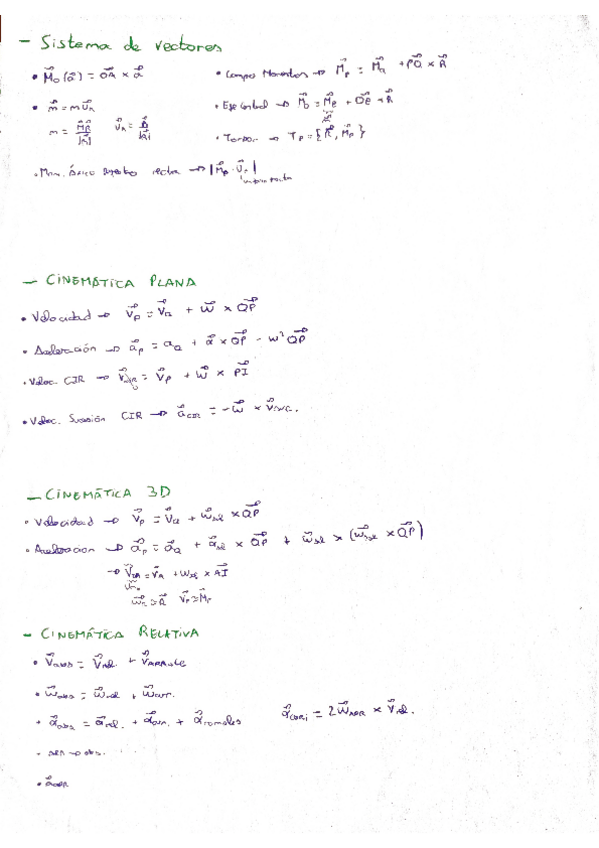 - Sistema de vectores
• M⃗o(a⃗) = OA⃗ × a⃗
• Campo Momentos → M⃗p = M⃗Q + PQ⃗ × R⃗
• m⃗ = m u⃗R
m = M⃗R⃗/|R⃗| u⃗R = R⃗/|R⃗|
• Eje Central → M⃗o = M⃗e + OE⃗ × R⃗
• Torsor → Tp = {R⃗, M⃗p}
• Mom. recta → |M⃗p · U⃗r|
- CINEMÁTICA PLANA
• Velocidad → V⃗p = V⃗Q + w⃗ × QP⃗
• Aceleración → a⃗p = aQ + α⃗ × QP⃗ - w² QP⃗
• Veloc. CIR → = V⃗p + w⃗ × PI⃗
• Veloc. Sucesión CIR → a⃗CIR = -w⃗ × V⃗suc.
- CINEMÁTICA 3D
• Velocidad → V⃗p = V⃗Q + w⃗sól × QP⃗
• Aceleracion → a⃗p = a⃗Q + α⃗sól × QP⃗ + w⃗sól × (w⃗sól × QP⃗)
→ = V⃗A + wsól × AI⃗
w⃗ ≃ R⃗ V⃗p ≃ M⃗p
- CINEMÁTICA RELATIVA
• V⃗abs = V⃗rel. + V⃗arrastre
• w⃗abs = w⃗rel + w⃗arr.
• a⃗abs = a⃗rel. + a⃗arr. + a⃗coriolis
a⃗cori = 2w⃗arr × V⃗rel.